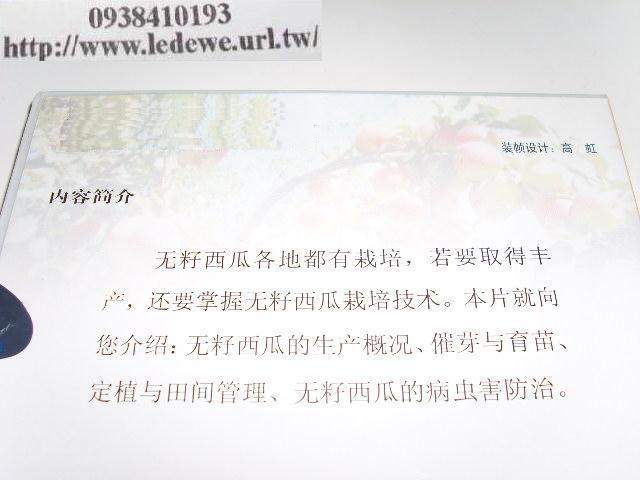 0938410193
http://www.ledewe.url.tw/
装帧设计：高 虹
内容简介
无籽西瓜各地都有栽培，若要取得丰
产，还要掌握无籽西瓜栽培技术。本片就向
您介绍：无籽西瓜的生产概况、催芽与育苗、
定植与田间管理、无籽西瓜的病虫害防治。